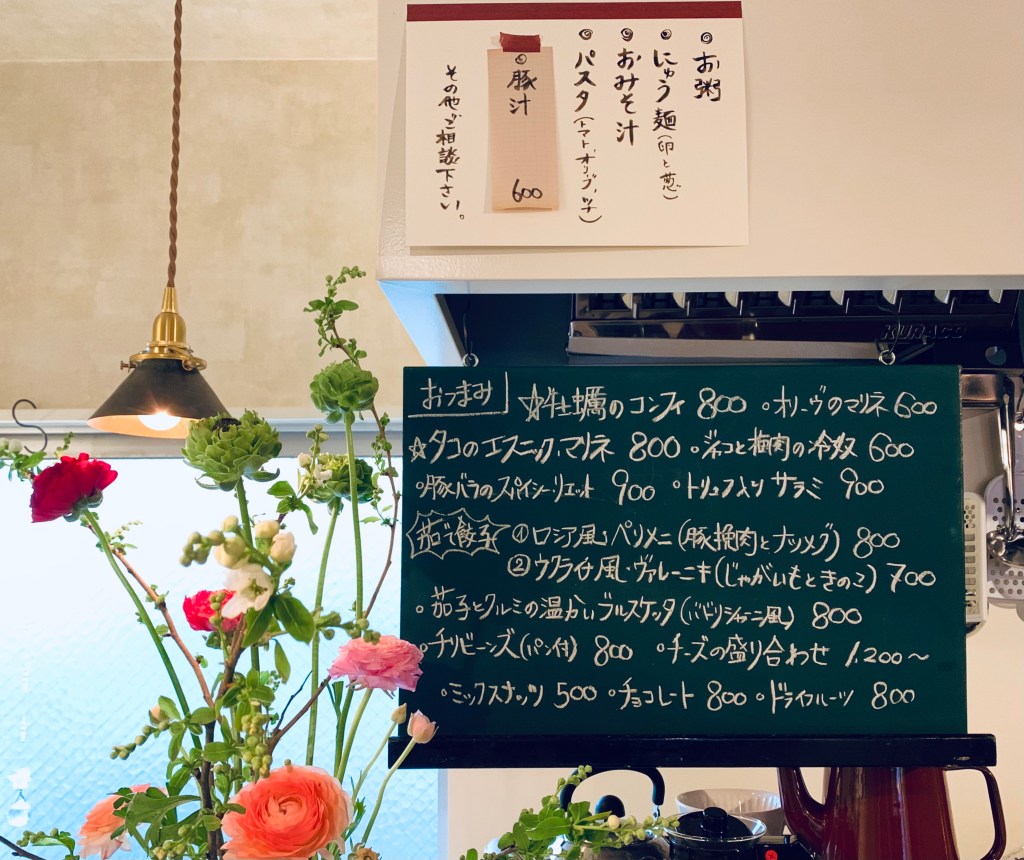 お粥
にゅう麺(卵と葱)
おみそ汁
パスタ(トマト、オリーブ、ツナ)
豚汁 600
その他ご相談下さい。
KURACO
おつまみ ☆牡蠣のコンフィ 800 ・オリーヴのマリネ 600
☆タコのエスニックマリネ 800 ・ジャコと梅肉の冷奴 600
・豚バラのスパイシーリエット 900 ・トリュフ入りサラミ 900
茹で餃子 ①ロシア風・ペリメニ(豚挽肉とナツメグ) 800
②ウクライナ風・ヴァレーニキ(じゃがいもときのこ) 700
・茄子とクルミの温かいブルスケッタ(バドリジャーニ風) 800
・チリビーンズ(パン付) 800 ・チーズの盛り合わせ 1,200〜
・ミックスナッツ 500 ・チョコレート 800 ・ドライフルーツ 800